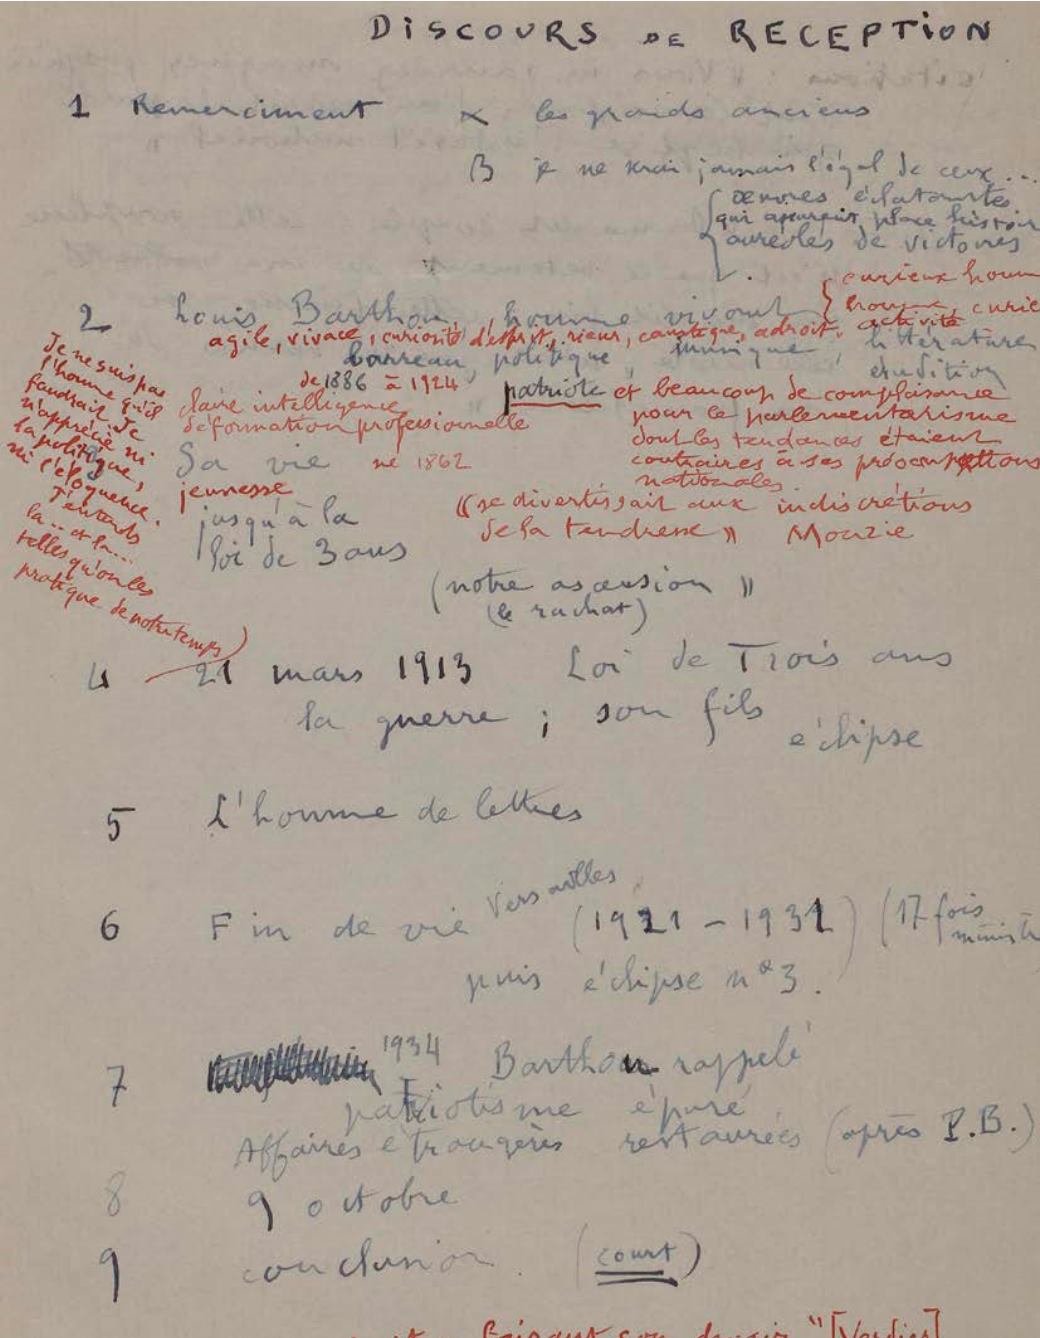 DISCOURS DE RECEPTION
1 Remerciment α les grands anciens
β je ne serai jamais l'égal de ceux ...
œuvres éclatantes
qui place histoir
auréolés de victoires
curieux homm
2 Louis Barthou, homme vivant homme curie
agile, vivace, curiosité d'esprit, rieur, caustique, adroit. activité
barreau, politique, musique, littérature
érudition
de 1886 à 1924 patriote et beaucoup de complaisance
claire intelligence pour le parlementarisme
déformation professionnelle dont les tendances étaient
3 Sa vie né 1862 contraires à ses préoccupations
nationales.
jeunesse
jusqu'à la
loi de 3 ans
"se divertissait aux indiscrétions
de la tendresse" Monzie
(notre ascension"
(le rachat)
Je ne suis pas
l'homme qu'il
faudrait. Je
n'apprécie ni
la politique,
ni l'éloquence.
J'entends
la .. et la ...
telles qu'on les
pratique de notre temps)
4 21 mars 1913 Loi de Trois ans
la guerre ; son fils
éclipse
5 L'homme de lettres
6 Fin de vie Versailles (1921 - 1931) (17 fois
minist
puis éclipse n° 3.
7 1934 Barthou rappelé
patriotisme épuré
Affaires étrangères restaurées (après P.B.)
8 9 octobre
9 conclusion. (court)
faisant son devoir" [Verdier]